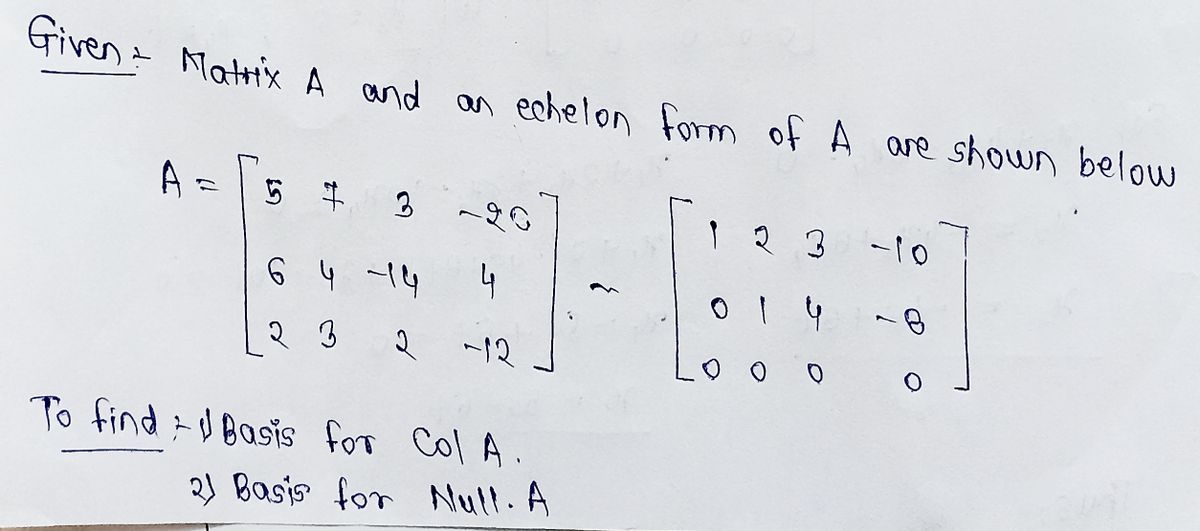 Given :- Matrix A and an echelon form of A are shown below
A = [ 5 7 3 -20 ] ~ [ 1 2 3 -10 ]
[ 6 4 -14 4 ] [ 0 1 4 -8 ]
[ 2 3 2 -12 ] [ 0 0 0 0 ]
To find :- 1) Basis for Col A.
2) Basis for Null. A